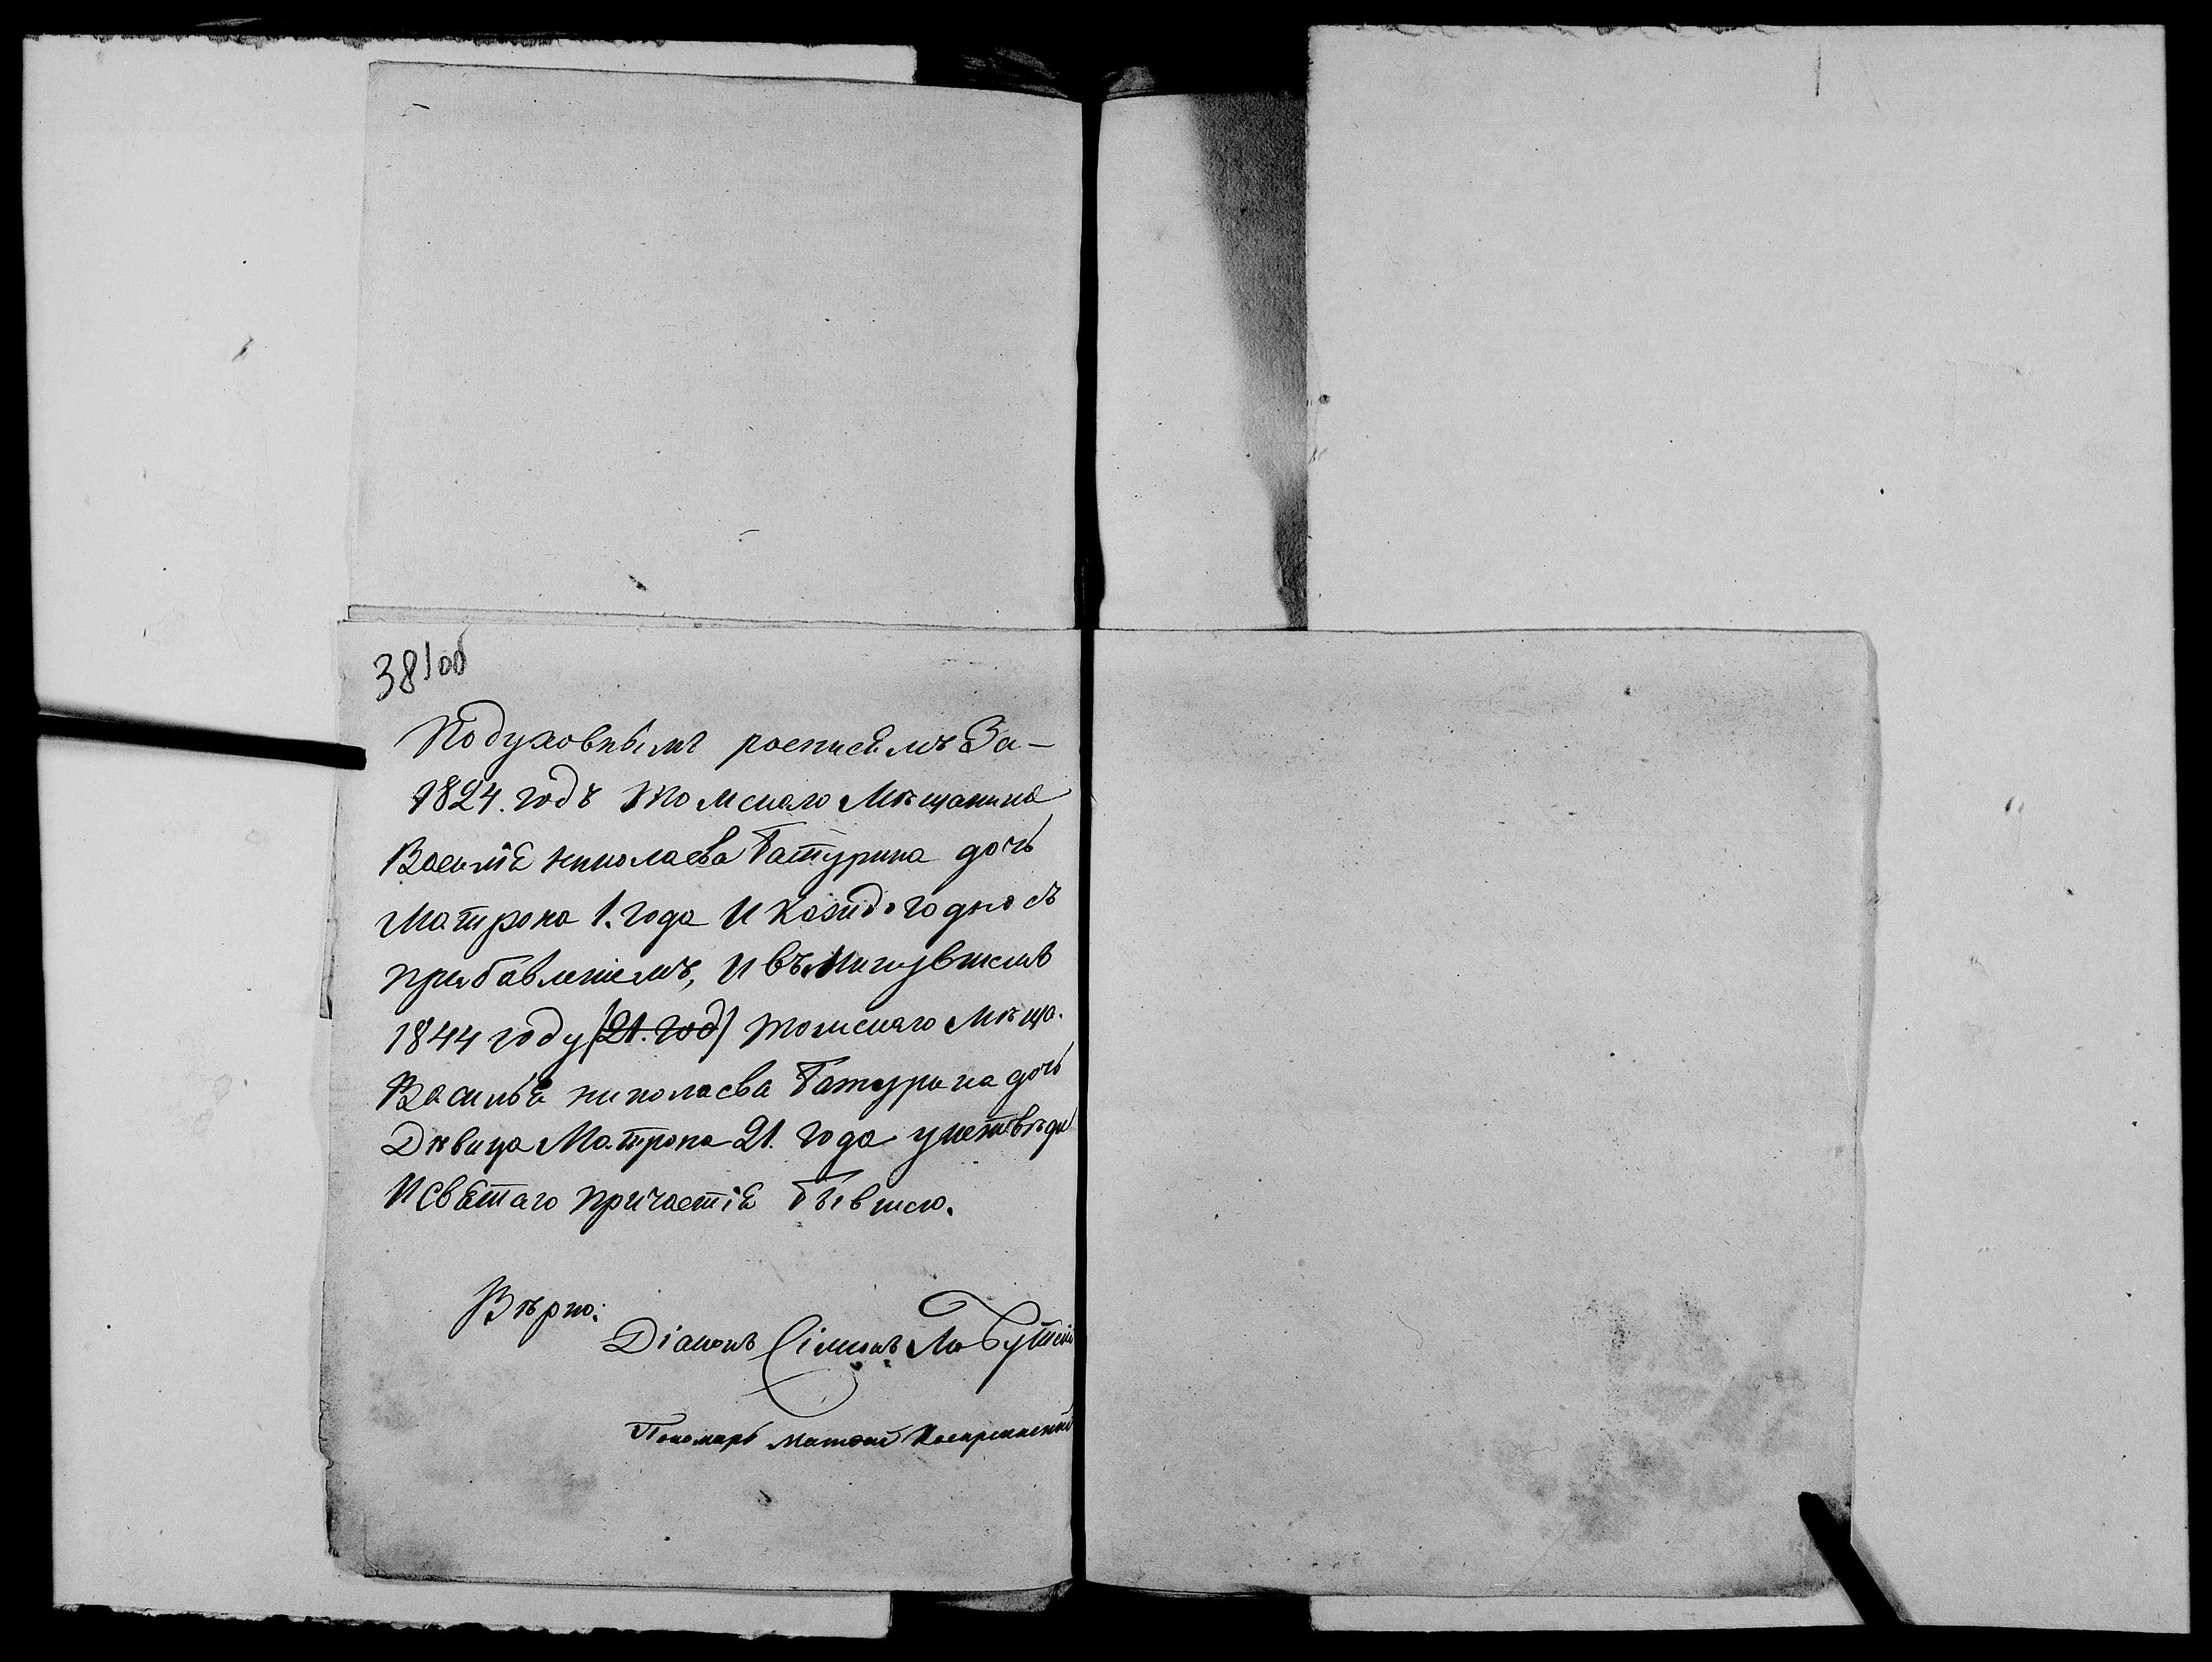 38 об
По духовнымъ росписямъ За-
1824. годъ Томскаго Мѣщанина
Василія Николаева Батурина дочь
Матрона 1. года И Каждогодно съ
прибавленіемъ, И въ Минувшемъ
1844 году (21. год) Томскаго Мѣща.
Василья николаева Батурина дочь
Дѣвица Матрона 21. года у исповѣди
И Святаго Причастія Бывшею.
Вѣрно:
Діаконъ Сімионъ
Пономарь Матѳей